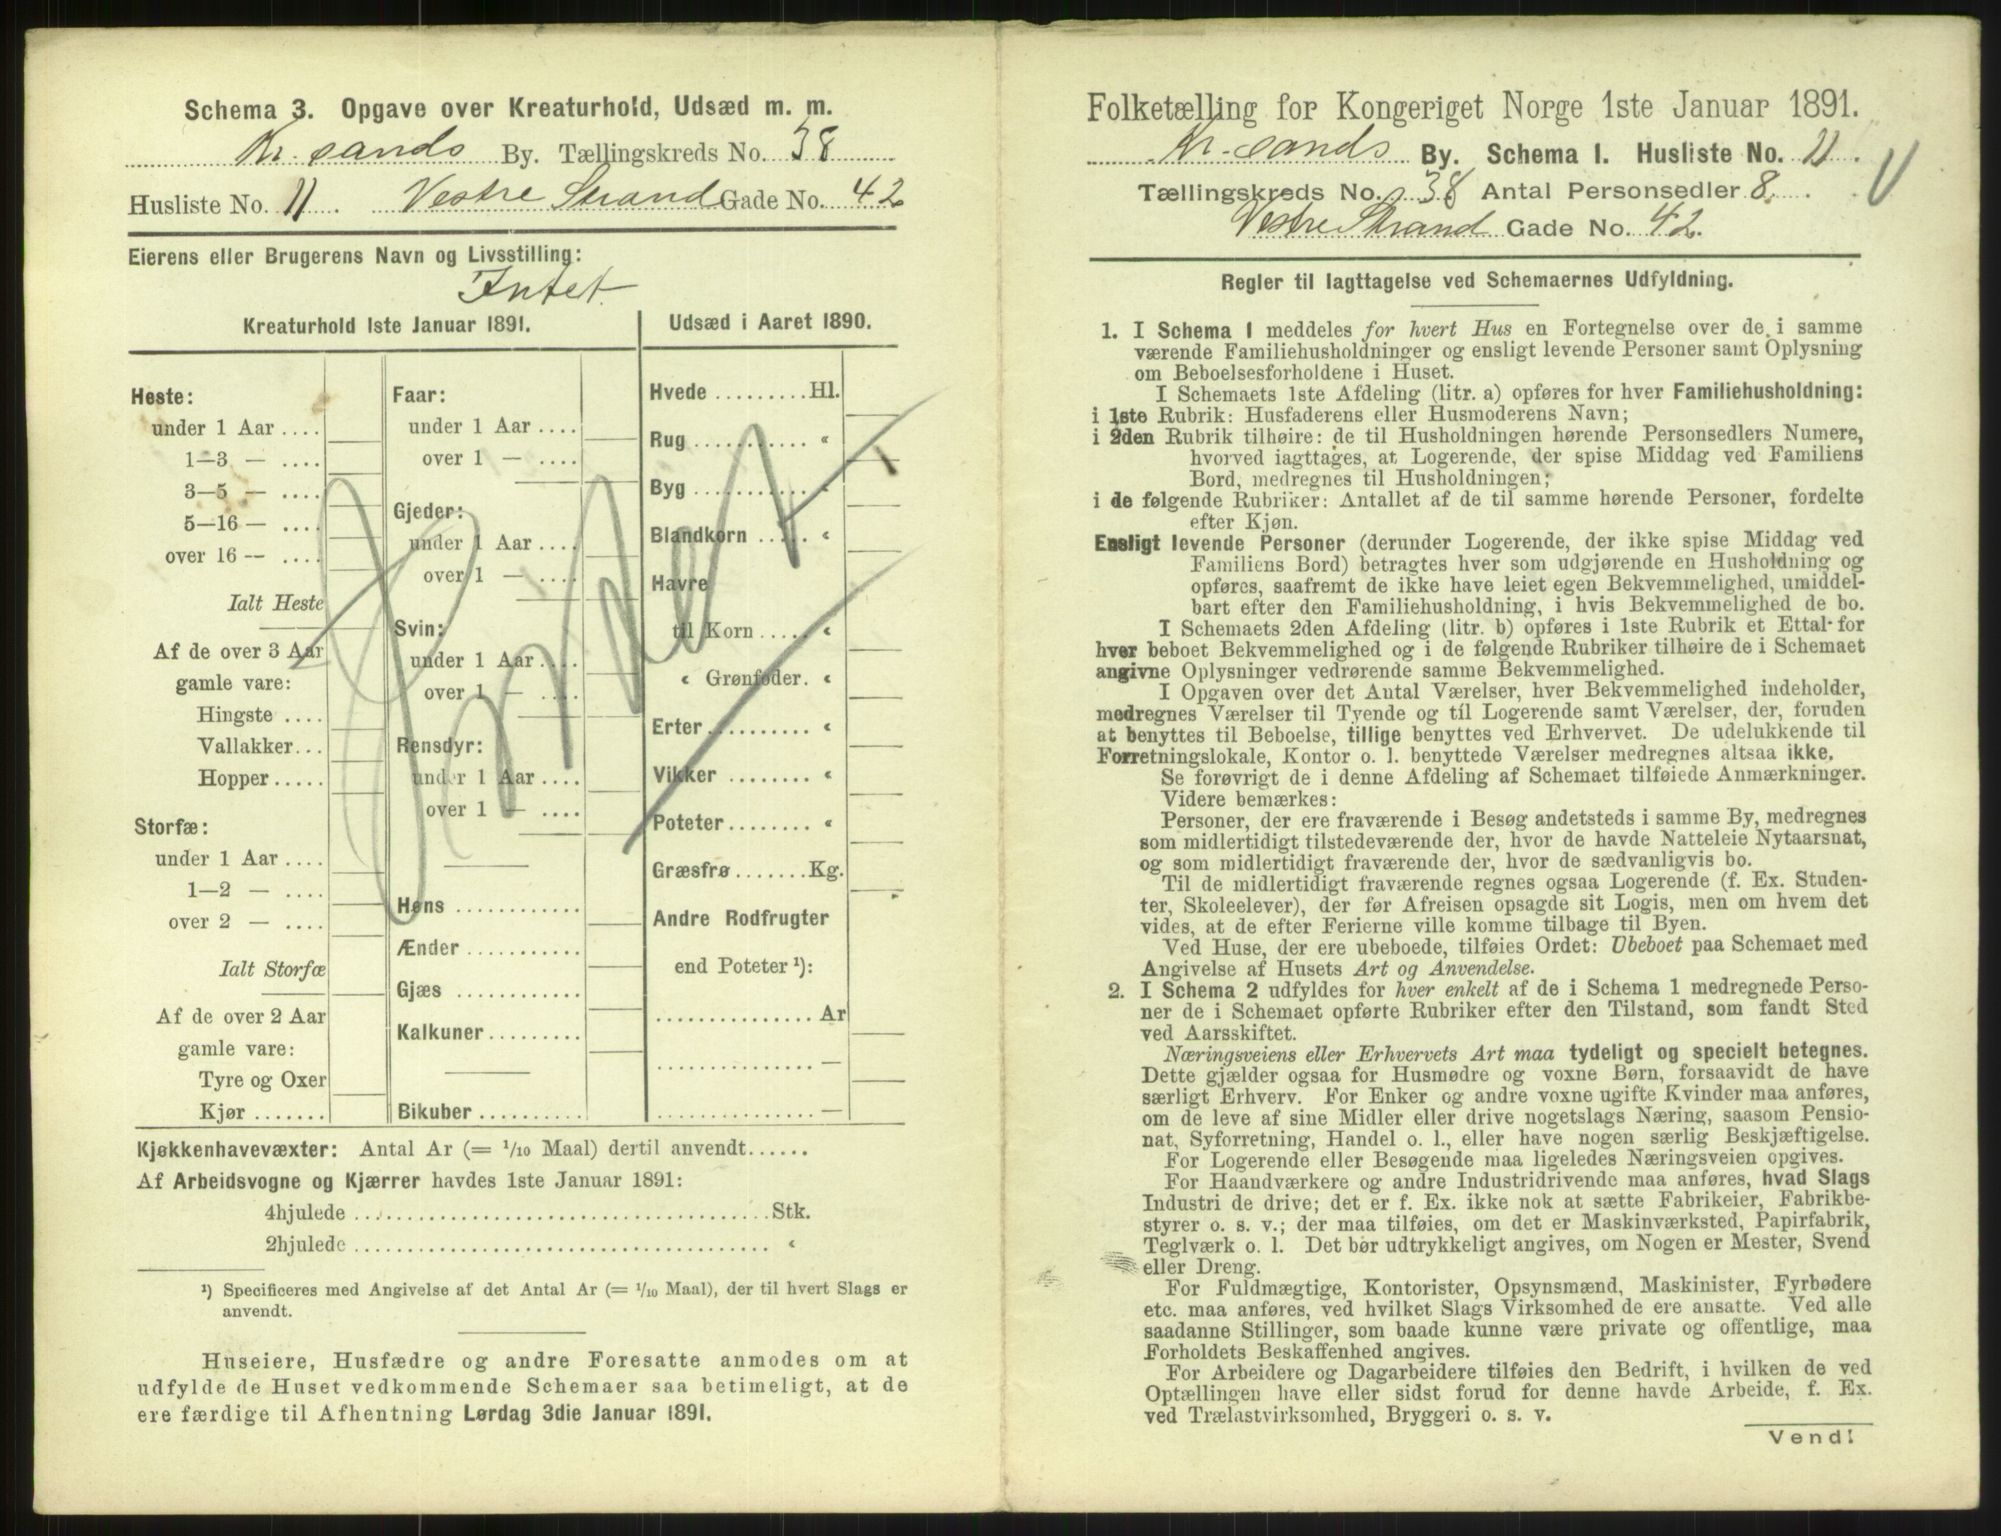 Schema 3. Opgave over Kreaturhold, Udsæd m. m.
Kr. sands By. Tællingskreds No. 38
Husliste No. 11. Vestre Strand Gade No. 42
Eierens eller Brugerens Navn og Livsstilling:
Intet.
Kreaturhold 1ste Januar 1891.
Heste:
under 1 Aar ....
1—3 — ....
3—5 — ....
5—16 — ....
over 16 — ....
Ialt Heste
Af de over 3 Aar
gamle vare:
Hingste ....
Vallakker...
Hopper.....
Storfæ:
under 1 Aar ....
1—2 — ....
over 2 — ....
Ialt Storfæ
Af de over 2 Aar
gamle vare:
Tyre og Oxer
Kjør .......
Faar:
under 1 Aar ....
over 1 — ....
Gjeder:
under 1 Aar ....
over 1 — ....
Svin:
under 1 Aar ....
over 1 — ....
Rensdyr:
under 1 Aar ....
over 1 — ....
Høns ............
Ænder ...........
Gjæs ............
Kalkuner.........
Bikuber..........
Udsæd i Aaret 1890.
Hvede .........Hl.
Rug ........... «
Byg ........... «
Blandkorn ..... «
Havre
til Korn..... «
« Grønfoder. «
Erter ......... «
Vikker ........ «
Poteter........ «
Græsfrø.......Kg.
Andre Rodfrugter
end Poteter ¹):
...............Ar
...............—
...............—
Kjøkkenhavevæxter: Antal Ar (= 1/10 Maal) dertil anvendt......
Af Arbeidsvogne og Kjærrer havdes 1ste Januar 1891:
4hjulede ......................................Stk.
2hjulede ...................................... «
¹) Specificeres med Angivelse af det Antal Ar (= 1/10 Maal), der til hvert Slags er
anvendt.
Huseiere, Husfædre og andre Foresatte anmodes om at
udfylde de Huset vedkommende Schemaer saa betimeligt, at de
ere færdige til Afhentning Lørdag 3die Januar 1891.
Folketælling for Kongeriget Norge 1ste Januar 1891.
Kr. sands By. Schema 1. Husliste No. 11.
Tællingskreds No. 38 Antal Personsedler 8.
Vestre Strand Gade No. 42.
Regler til Iagttagelse ved Schemaernes Udfyldning.
1. I Schema 1 meddeles for hvert Hus en Fortegnelse over de i samme
værende Familiehusholdninger og ensligt levende Personer samt Oplysning
om Beboelsesforholdene i Huset.
I Schemaets 1ste Afdeling (litr. a) opføres for hver Familiehusholdning:
i 1ste Rubrik: Husfaderens eller Husmoderens Navn;
i 2den Rubrik tilhøire: de til Husholdningen hørende Personsedlers Numere,
hvorved iagttages, at Logerende, der spise Middag ved Familiens
Bord, medregnes til Husholdningen;
i de følgende Rubriker: Antallet af de til samme hørende Personer, fordelte
efter Kjøn.
Ensligt levende Personer (derunder Logerende, der ikke spise Middag ved
Familiens Bord) betragtes hver som udgjørende en Husholdning og
opføres, saafremt de ikke have leiet egen Bekvemmelighed, umiddel-
bart efter den Familiehusholdning, i hvis Bekvemmelighed de bo.
I Schemaets 2den Afdeling (litr. b) opføres i 1ste Rubrik et Ettal for
hver beboet Bekvemmelighed og i de følgende Rubriker tilhøire de i Schemaet
angivne Oplysninger vedrørende samme Bekvemmelighed.
I Opgaven over det Antal Værelser, hver Bekvemmelighed indeholder,
medregnes Værelser til Tyende og til Logerende samt Værelser, der, foruden
at benyttes til Beboelse, tillige benyttes ved Erhvervet. De udelukkende til
Forretningslokale, Kontor o. l. benyttede Værelser medregnes altsaa ikke.
Se forøvrigt de i denne Afdeling af Schemaet tilføiede Anmærkninger.
Videre bemærkes:
Personer, der ere fraværende i Besøg andetsteds i samme By, medregnes
som midlertidigt tilstedeværende der, hvor de havde Natteleie Nytaarsnat,
og som midlertidigt fraværende der, hvor de sædvanligvis bo.
Til de midlertidigt fraværende regnes ogsaa Logerende (f. Ex. Studen-
ter, Skoleelever), der før Afreisen opsagde sit Logis, men om hvem det
vides, at de efter Ferierne ville komme tilbage til Byen.
Ved Huse, der ere ubeboede, tilføies Ordet: Ubeboet paa Schemaet med
Angivelse af Husets Art og Anvendelse.
2. I Schema 2 udfyldes for hver enkelt af de i Schema 1 medregnede Perso-
ner de i Schemaet opførte Rubriker efter den Tilstand, som fandt Sted
ved Aarsskiftet.
Næringsveiens eller Erhvervets Art maa tydeligt og specielt betegnes.
Dette gjælder ogsaa for Husmødre og voxne Børn, forsaavidt de have
særligt Erhverv. For Enker og andre voxne ugifte Kvinder maa anføres,
om de leve af sine Midler eller drive nogetslags Næring, saasom Pensio-
nat, Syforretning, Handel o. l., eller have nogen særlig Beskjæftigelse.
For Logerende eller Besøgende maa ligeledes Næringsveien opgives.
For Haandværkere og andre Industridrivende maa anføres, hvad Slags
Industri de drive; det er f. Ex. ikke nok at sætte Fabrikeier, Fabrikbe-
styrer o. s. v.; der maa tilføies, om det er Maskinværksted, Papirfabrik,
Teglværk o. l. Det bør udtrykkeligt angives, om Nogen er Mester, Svend
eller Dreng.
For Fuldmægtige, Kontorister, Opsynsmænd, Maskinister, Fyrbødere
etc. maa anføres, ved hvilket Slags Virksomhed de ere ansatte. Ved alle
saadanne Stillinger, som baade kunne være private og offentlige, maa
Forholdets Beskaffenhed angives.
For Arbeidere og Dagarbeidere tilføies den Bedrift, i hvilken de ved
Optællingen have eller sidst forud for denne havde Arbeide, f. Ex.
ved Trælastvirksomhed, Bryggeri o. s. v.
Vend!